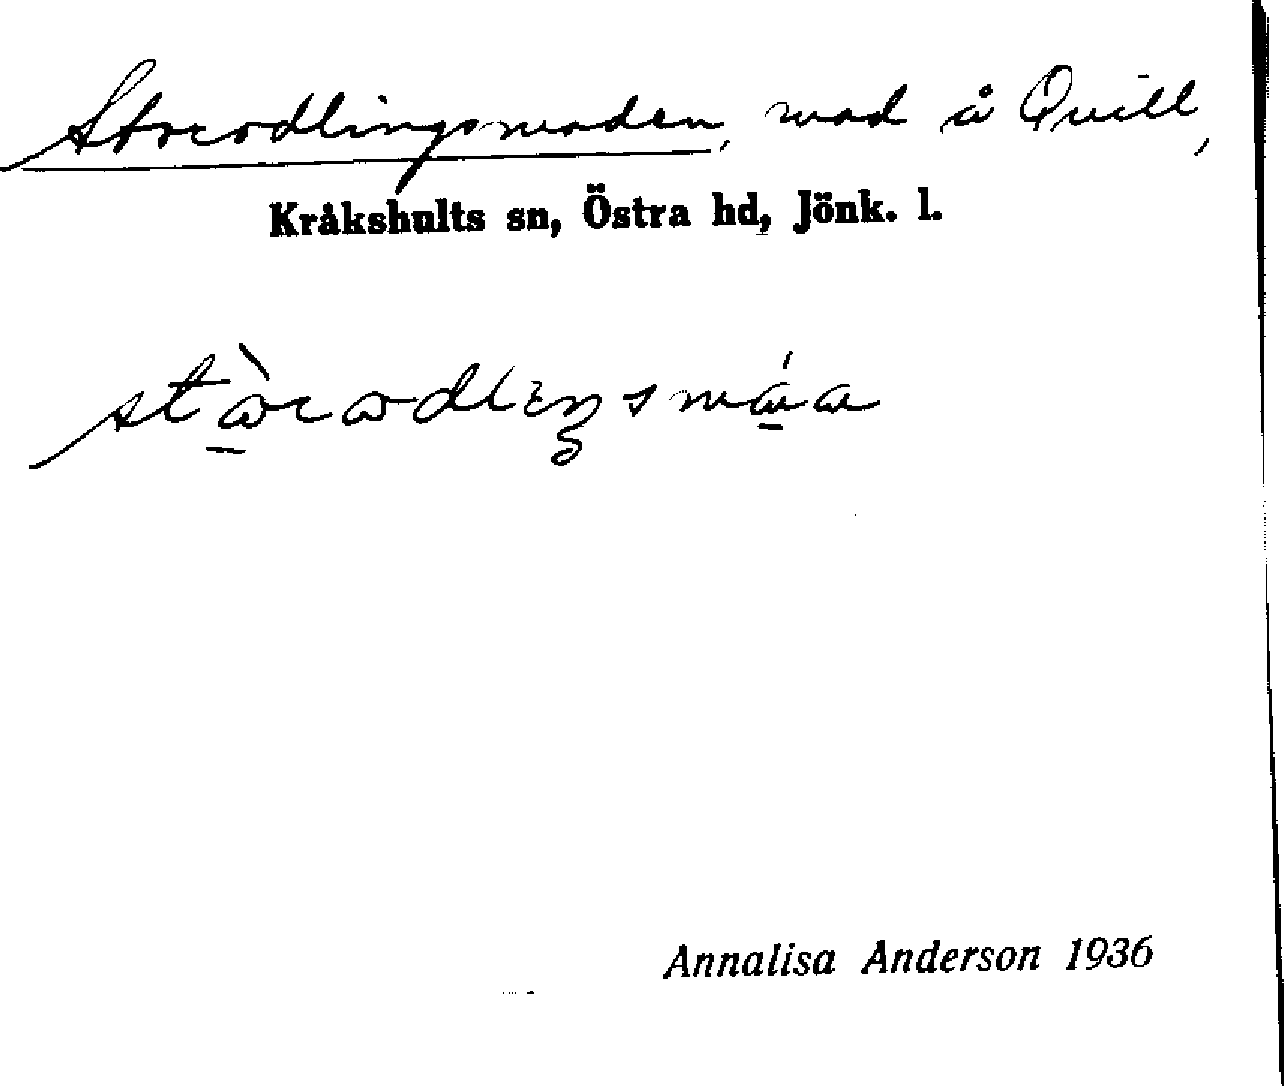 Storodlingsmaden, mad å Quill,
Kråkshults sn, Östra hd, Jönk. l.
Annalisa Anderson 1936